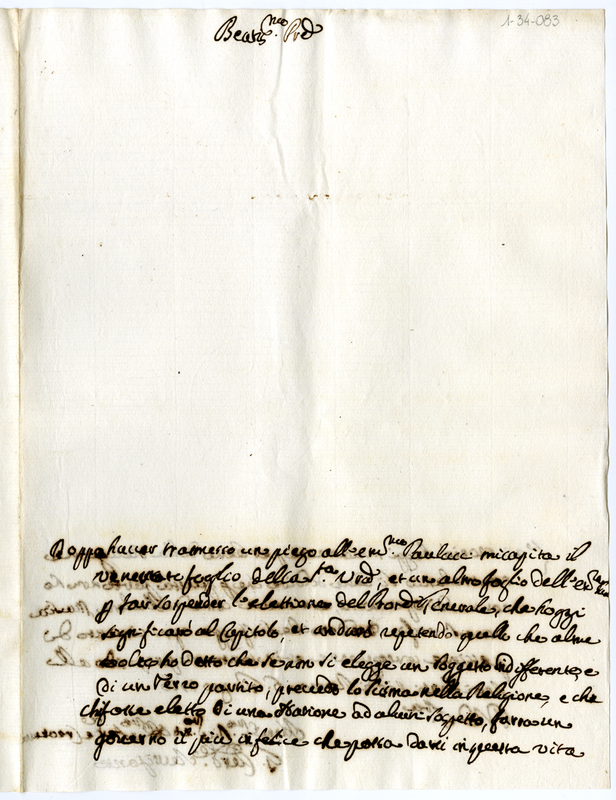 1-34-083
Beat.mo Prē
Doppo haver trasmesso un piego all'em.mo Paulucci mi capita il
venerato foglio della S.tà Vrā, et un altro foglio dell'
p far sospender l'elettione del Generale, che hoggi
significarò al Capitolo, et andarò repetendo quello che altre
volte ho detto che se non si elegge un soggetto indifferente, e
di un Terzo partito, prevedo lo sisma nella Religione, e che
chi fosse eletto di una natione ad alcuni sospetto, farra un
governo il più infelice che possa darsi in questa vita